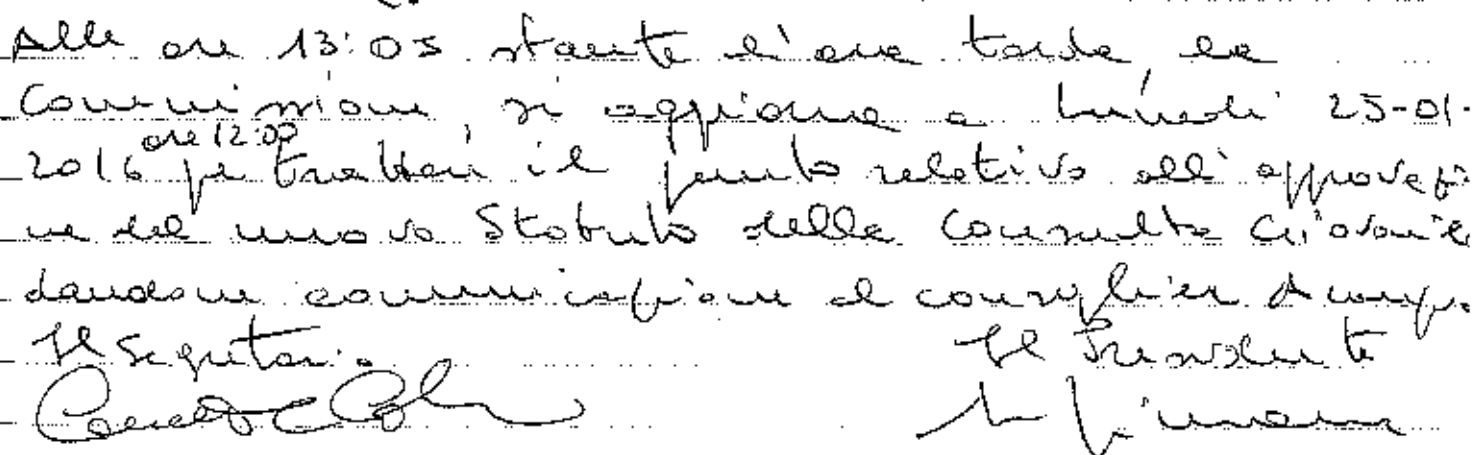 Alle ore 13:05 stante l'ora tarda, la
Commissione, si aggiorna a lunedì 25-01-
2016 ore 12:00 per trattare il punto relativo all'approvazio
ne del nuovo Statuto della Consulta Giovanile
dandone comunicazione al consiglier
Il Segretario Il Presidente